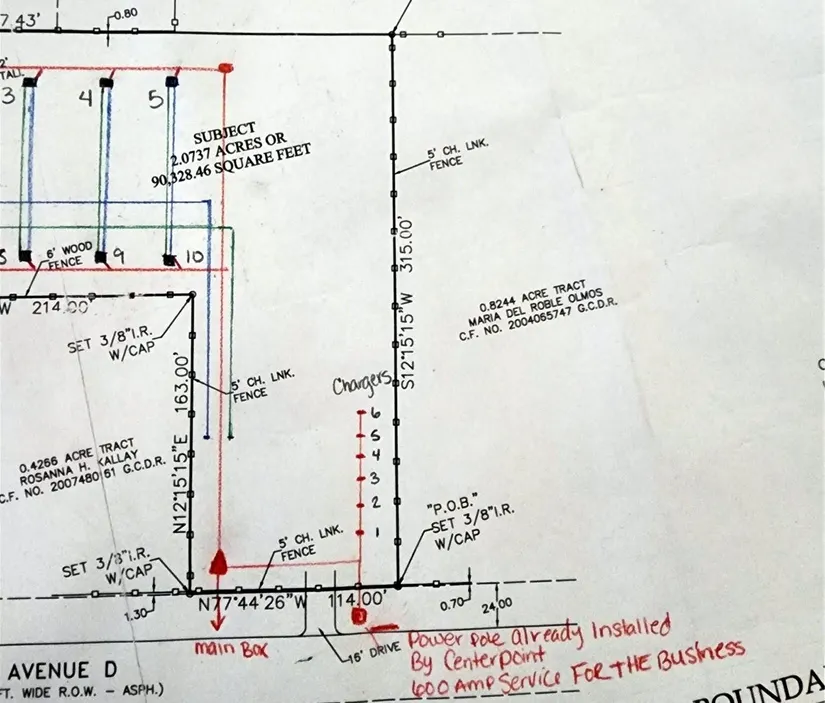 7.43'
0.80
2'
TALL
3
4
5
SUBJECT
2.0737 ACRES OR
90,328.46 SQUARE FEET
5' CH. LNK.
FENCE
6' WOOD
FENCE
9
10
W 214.00'
SET 3/8"I.R.
W/CAP
S12°15'15"W 315.00'
0.8244 ACRE TRACT
MARIA DEL ROBLE OLMOS
C.F. NO. 2004065747 G.C.D.R.
N12°15'15"E 163.00'
5' CH. LNK.
FENCE
Chargers
6
5
4
3
2
1
0.4266 ACRE TRACT
ROSANNA H. KALLAY
C.F. NO. 2007480161 G.C.D.R.
"P.O.B."
SET 3/8"I.R.
W/CAP
5' CH. LNK.
FENCE
SET 3/8"I.R.
W/CAP
1.30
N77°44'26"W 114.00'
0.70
24.00
main Box
16' DRIVE
Power pole already Installed
By Centerpoint
600 Amp Service FOR THE Business
AVENUE D
FT. WIDE R.O.W. - ASPH.)
BOUNDA